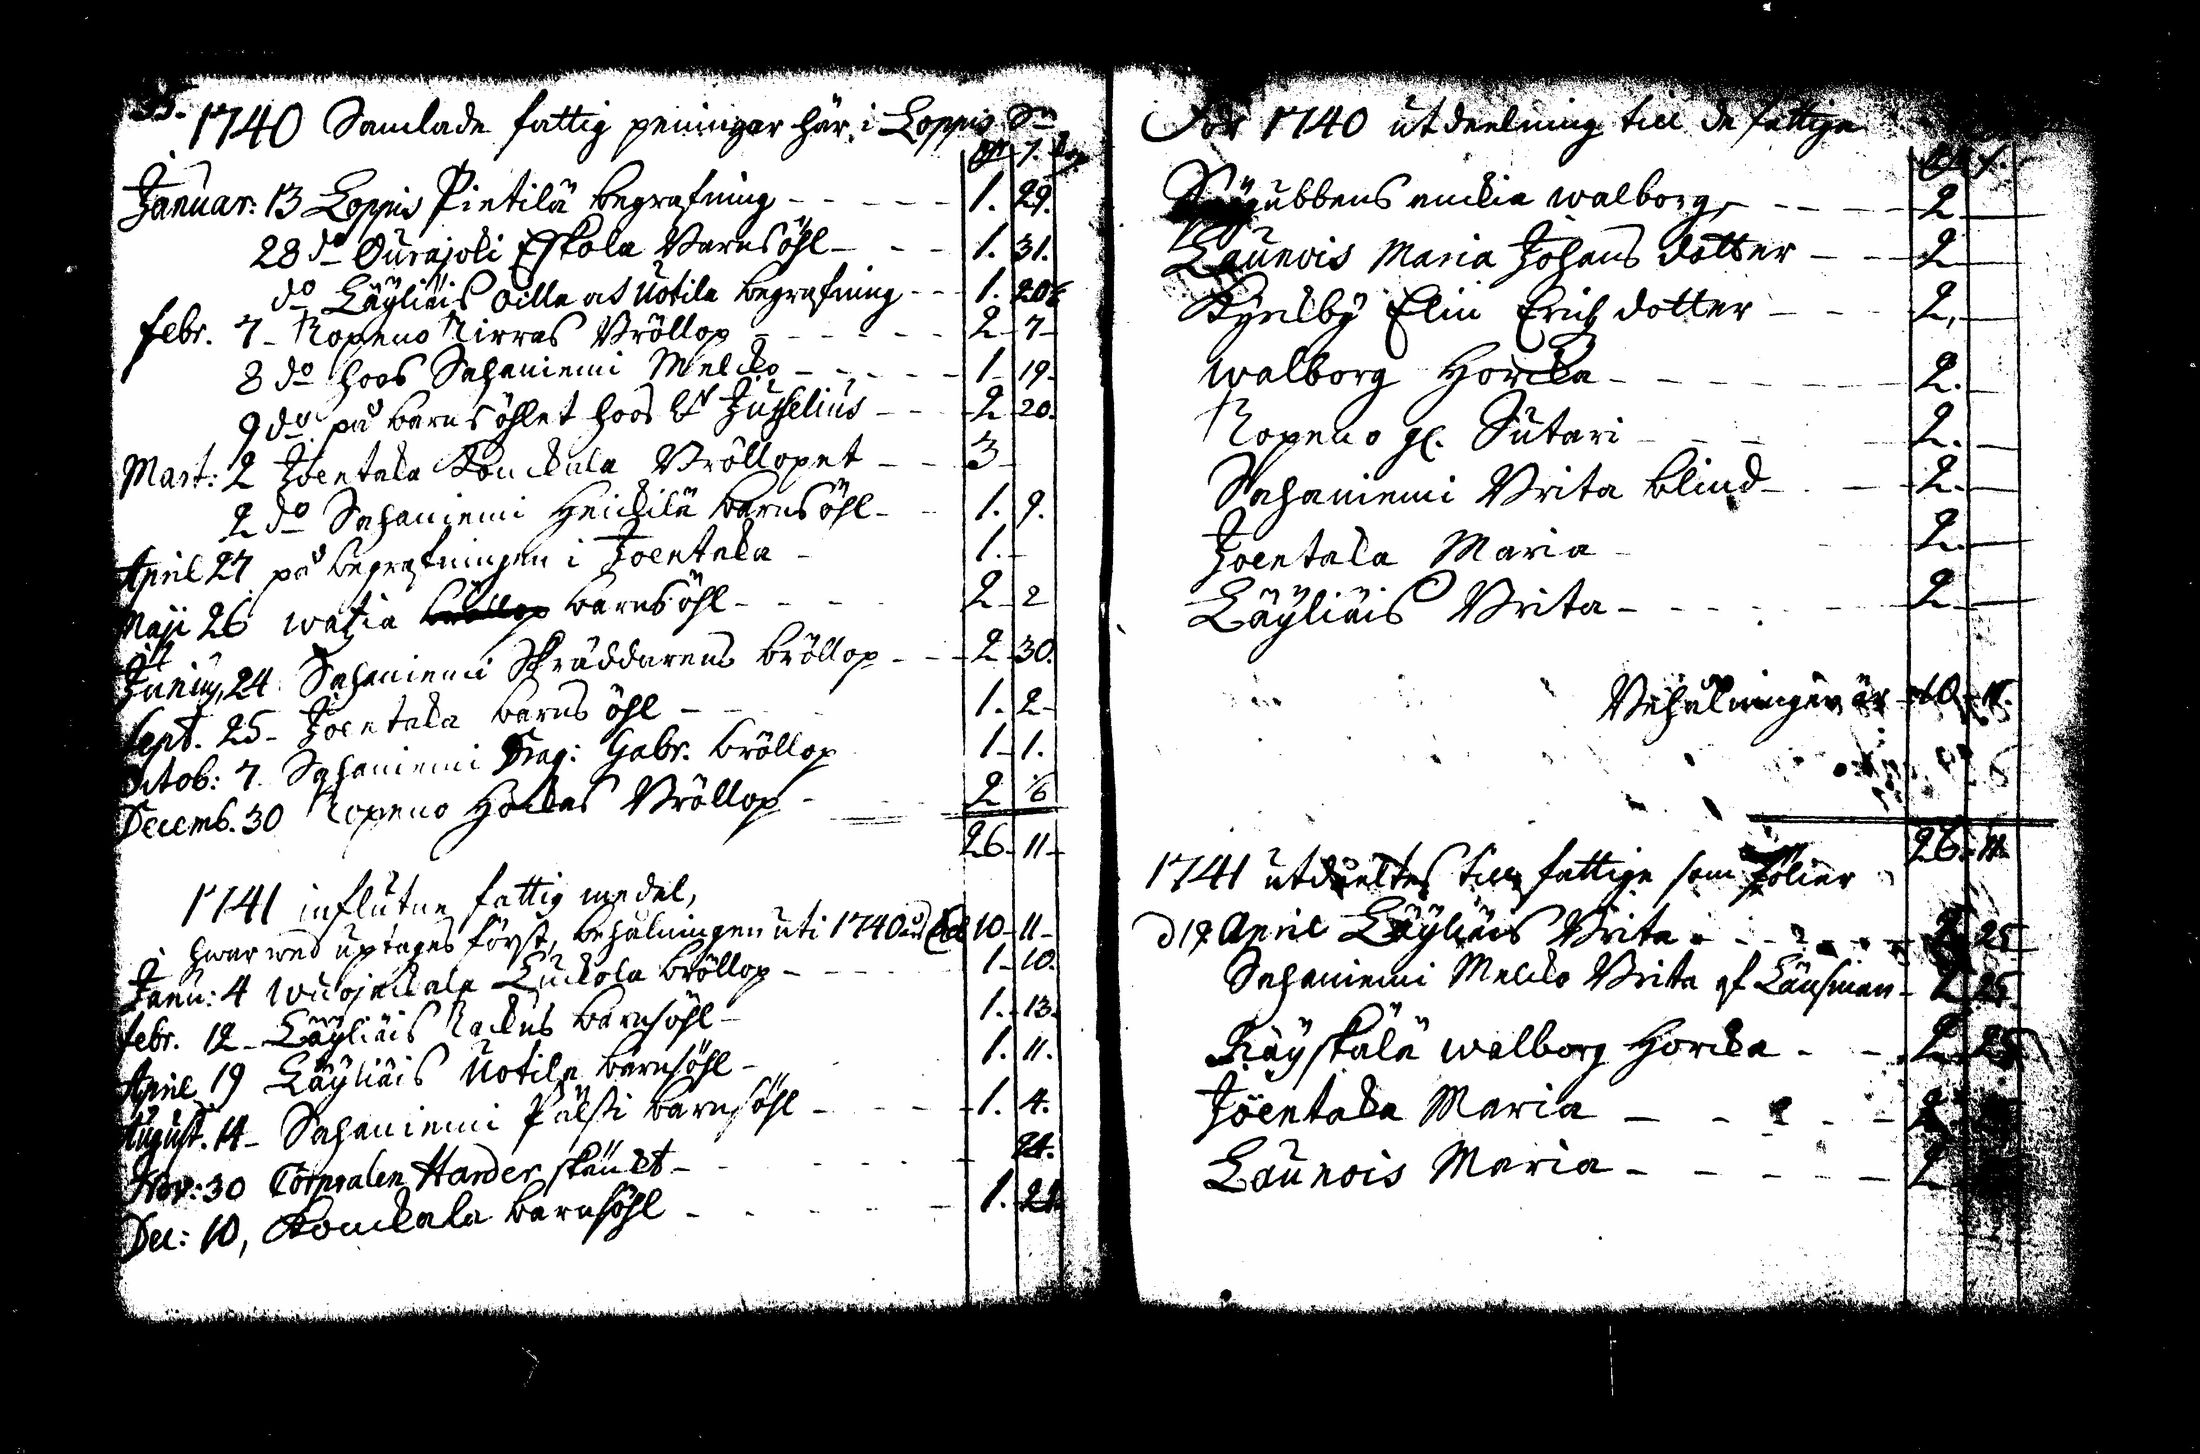 1740 Samlade fattig peningar här i Loppis Sn
Januar: 13 Loppis Pietilä begrafning - - - - - 1. 29.
28 do Ourajoki Eskola Barnsöhl - - - 1. 31.
do Läyliäis Oilla at Uotila begrafning - - - 1. 20
febr. 7 - Kopeno Kirras Bröllop - - - - - 2 - 7 -
8 do hoos Sajaniemi Melcko - - - - - 1 - 19 -
9 do på barnsöhlet hoos Juhselius - - - 2 20.
Mart: 2 Joentaka Konckala Bröllopet - - 3 -
2 do Sajaniemi Heickilä barnsöhl - - 1. 9.
April 27 på begrafningen i Joentaka - 1. -
Maji 26 watzia barnsöhl - - - 2 - 2
Junius, 24 Sajaniemi Skräddarens bröllop - - - 2 - 30.
Sept. 25 - Joentaka barnsöhl - - - 1. 2 -
Octob: 7 Sajaniemi Drag: Gabr. bröllop 1 - 1.
Decemb. 30 Kopeno Hockas Bröllop - 2 16
26 - 11 -
1741 influtne fattig medel,
hwar wed uptages först, behålningen uti 1740 10 - 11 -
Janu: 4 wuojackala Luckola bröllop - - - - 1 - 10.
febr. 12 - Läyliäis Kackus barnsöhl - 1. - 13.
April 19 Läyliäis Uotila barnsöhl - 1. 11.
August. 14 - Sajaniemi Pälsi barnsöhl - - - - 1. 4.
Nov: 30 Corporalen Harder skänckt - - - - - 24.
Dec: 10, Konckala barnsöhl - - - - - 1.
För 1740 utdeelning till de fattiga
enckia walborg, - - - - 2 -
Launois Maria Johans dotter - - - 2 -
Kyrckby Elin Erichs dotter - - - 2, -
walborg Horcka - - - - - - 2. -
Kopeno gl. Sutari - - - - 2. -
Sajaniemi Brita blind - - - 2 -
Joentaka Maria - 2 -
Läyliäis Brita - - - - - - 2 -
Behålningen är - 10 - 11.
26 - 11 -
1741 utdeeltes till fattige som fölier
d 19 April Läyliäis Brita - - - - - 2 25
Sajaniemi Melcko Brita af Länsman - 2 25
Räyskälä walborg Horcka - - 2 25
Joentaka Maria - - - - - 2
Launois Maria - - - - - 2